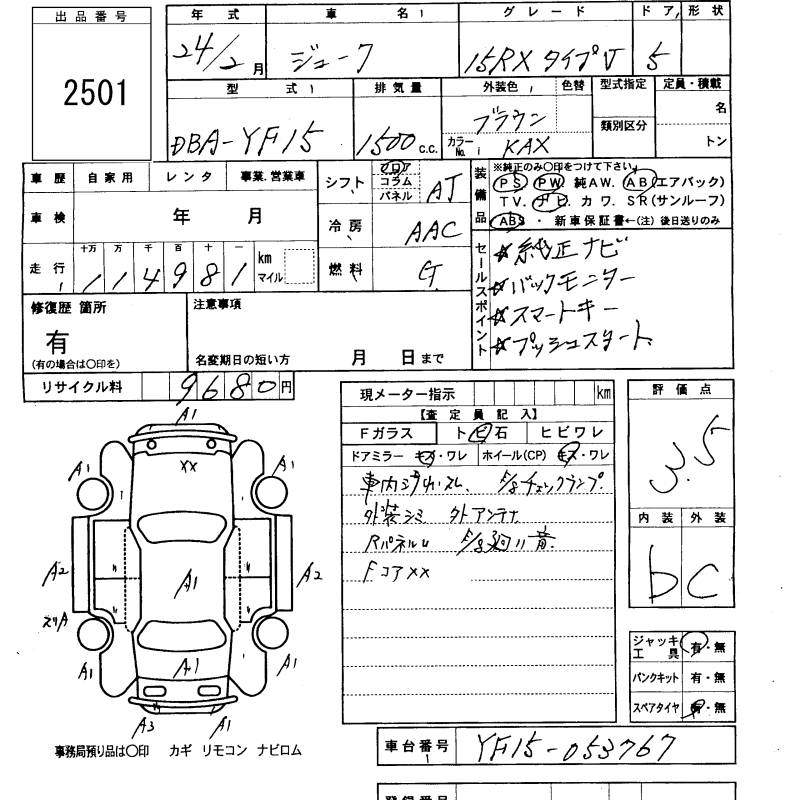 出品番号
2501
年式 車名 グレード ドア 形状
24/2月 ジューク 15RX タイプV 5
型式 排気量 外装色 色替 型式指定 定員・積載
DBA-YF15 1500 c.c. ブラウン 類別区分 名
カラーNo. KAX トン
車歴 自家用 レンタ 事業.営業車
車検 年 月
走行 十万 万 千 百 十 一 km マイル
114981
シフト フロア コラム パネル AT
冷房 AAC
燃料 G
装備品 ※純正のみ〇印をつけて下さい
PS PW 純AW. AB(エアバック)
TV. ナビ. カワ. SR(サンルーフ)
ABS ・ 新車保証書←(注) 後日送りのみ
セールスポイント
☆純正ナビ
☆バックモニター
☆スマートキー
☆プッシュスタート
修復歴 箇所
有
(有の場合は〇印を)
注意事項
名変期日の短い方 月 日まで
リサイクル料 9680円
現メーター指示 km
【査定員記入】
Fガラス トビ石 ヒビワレ
ドアミラー キズ・ワレ ホイール(CP) キズ・ワレ
車内ヨゴレスレ E/gチェックランプ
外装シミ 外アンテナ
Rパネルu E/g廻り音
Fコアxx
評価点
3.5
内装 外装
b C
ジャッキ工具 有・無
パンクキット 有・無
スペアタイヤ 有・無
A1
XX
A1 A1
A2 A1 A2
A1 A1 A1
A3 A1
事務局預り品は〇印 カギ リモコン ナビロム
車台番号 YF15-053767